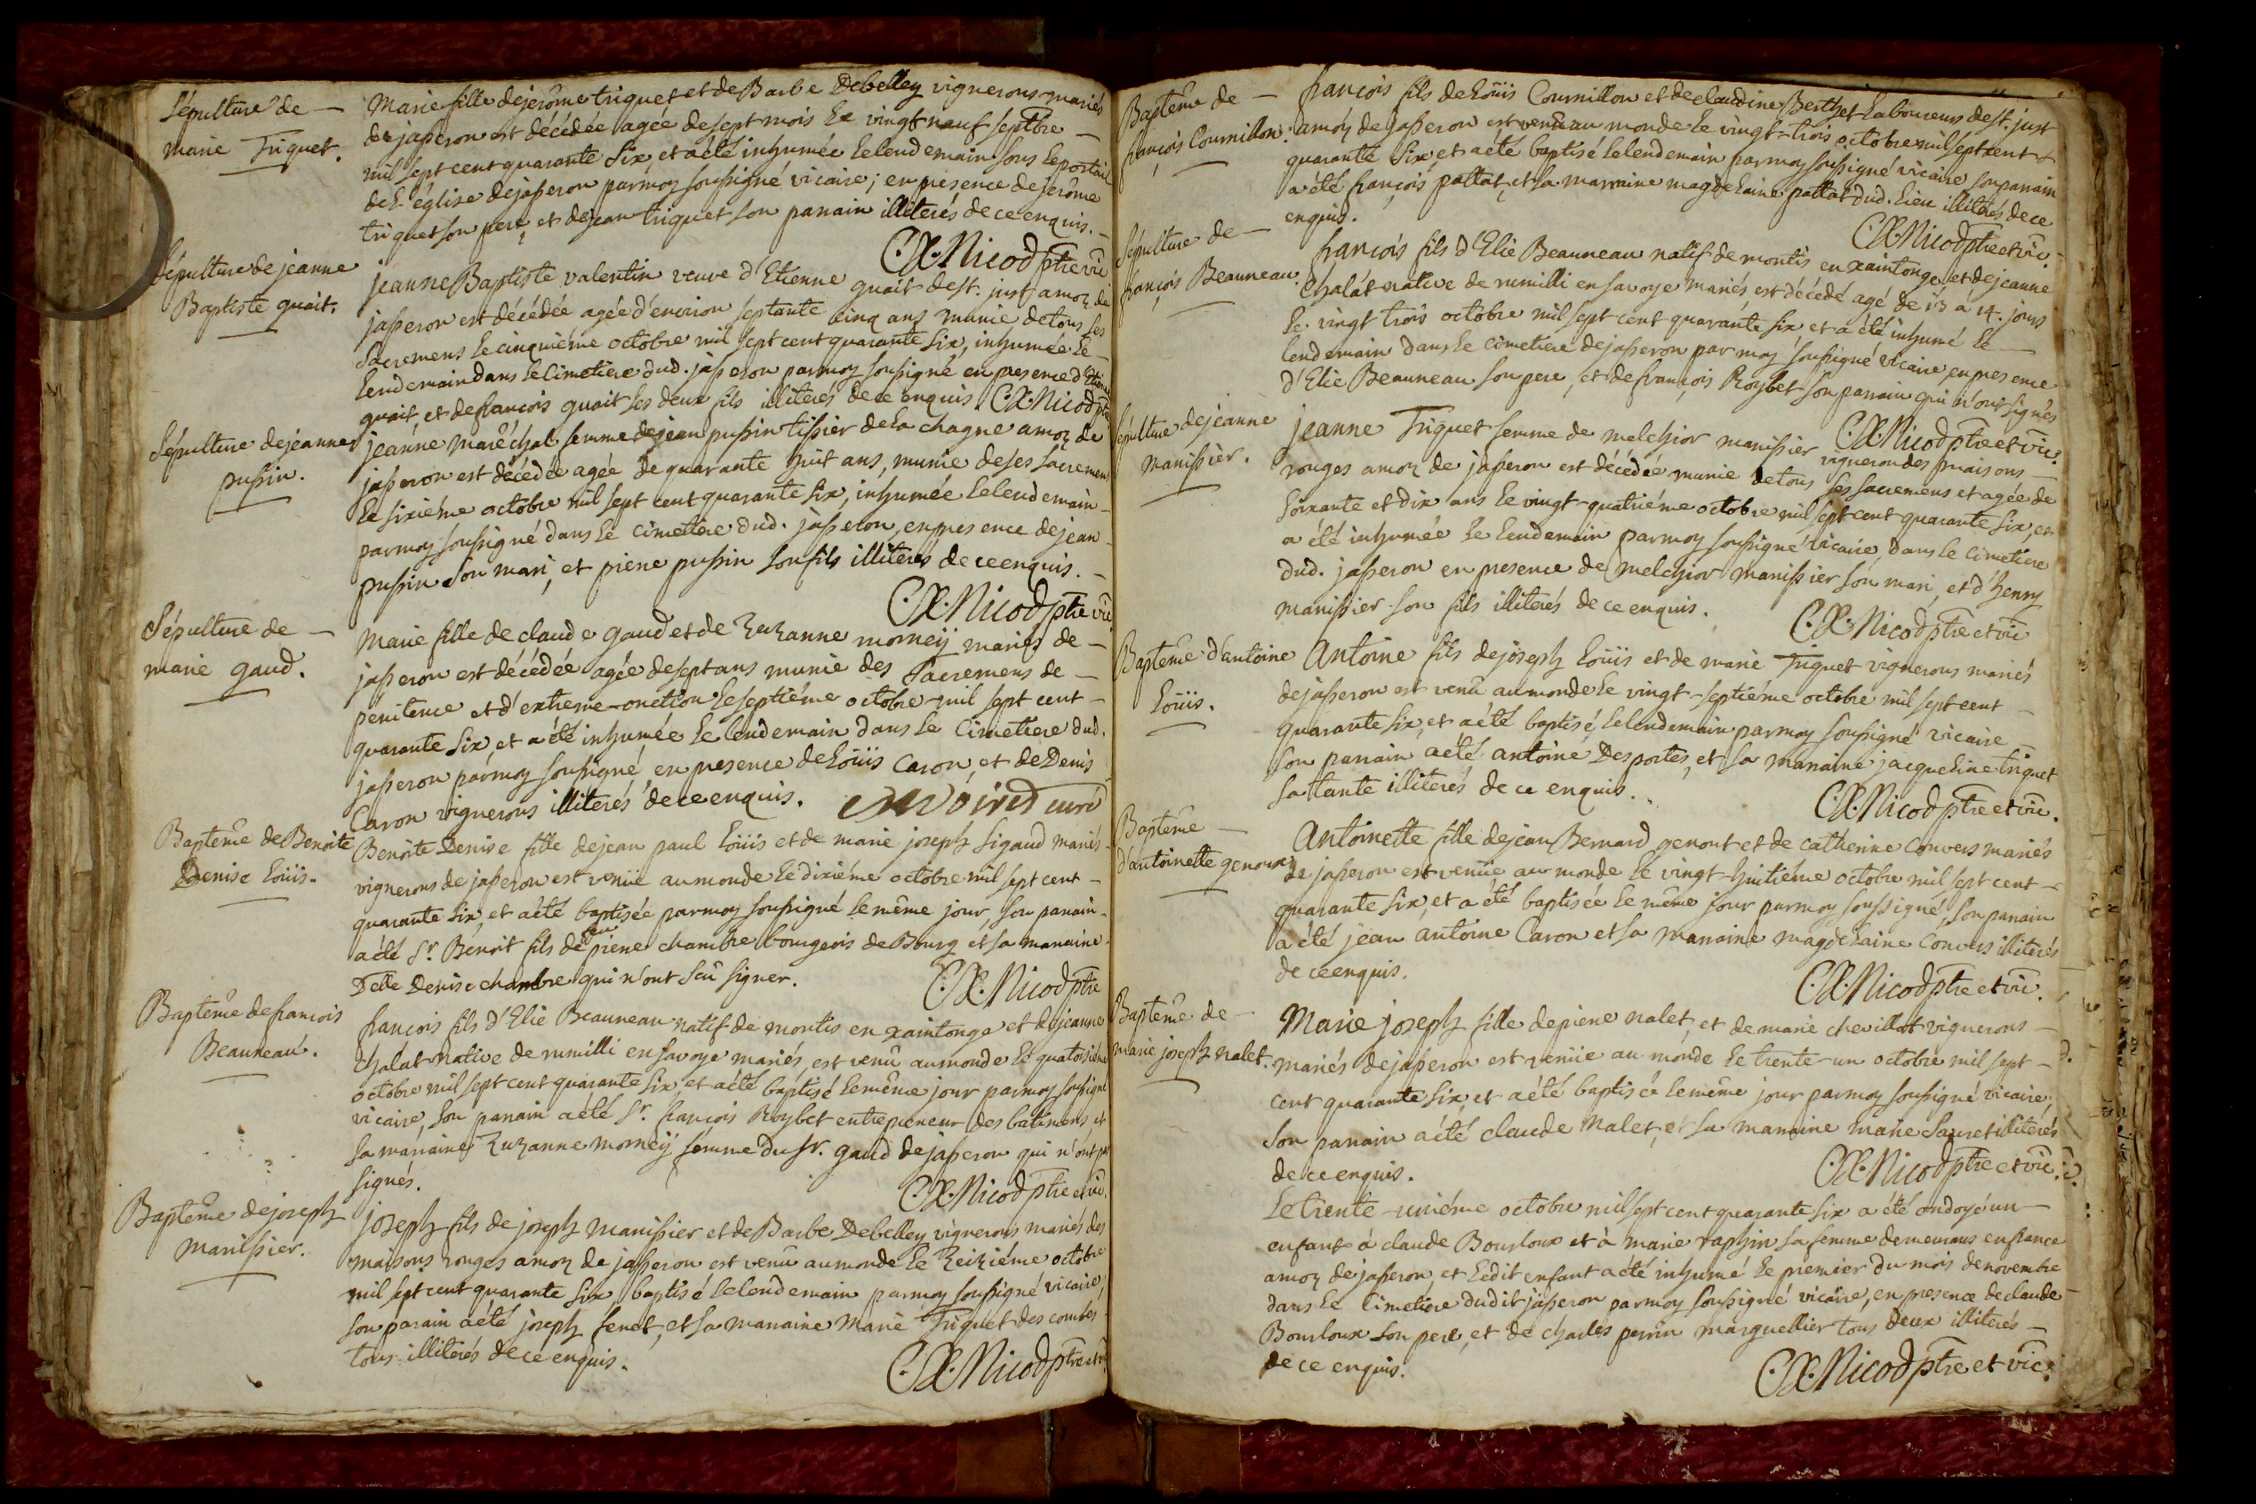 Sépulture de —
marie Triquet.
Marie fille de jerôme triquet et de Barbe Debelley vignerons mariés
de jasseron est décédée agée de sept mois le vingt neuf septbre —
mil sept cent quarante six, et a été inhumée le lendemain sous le portail
de l'église de jasseron par moy soussigné vicaire; en présence de jerôme
triquet son pere, et de jean triquet son parrain illiterés de ce enquis. —
C. X. Nicod ptre vic
Sépulture de jeanne
Baptiste guait.
jeanne Baptiste valentin veuve d'Etienne guait de st. just amoz de
jasseron est décédée agée d'environ septante cinq ans munie de tous ses
sacremens le cinquiéme octobre mil sept cent quarante six, inhumée le
lendemain dans le cimetiere dud. jasseron par moy soussigné en presence d'Etienne
guait, et de francois guait ses deux fils illiterés de ce enquis. C. X. Nicod ptre
Sépulture de jeanne
pussin.
jeanne marêchal femme de jean pussin tissier de la chagne amoz de
jasseron est décédée agée de quarante huit ans, munie de ses sacremens
le sixiéme octobre mil sept cent quarante six, inhumée le lendemain —
par moy soussigné dans le cimetiere dud. jasseron, en presence de jean —
pussin son mari, et pierre pussin son fils illiterés de ce enquis. —
C. X. Nicod ptre vic
Sépulture de —
marie gaud.
Marie fille de claude gaud et de Zuzanne morneÿ mariés de —
jasseron est décédée agée de sept ans munie des sacremens de —
penitence et d'extreme-onction le septiéme octobre mil sept cent —
quarante six, et a été inhumée le lendemain dans le cimetiere dud.
jasseron par moy soussigné, en presence de Loüis Caron, et de Denis
Caron vignerons illiterés de ce enquis. curé
Baptême de Benoite
Denise Loüis.
Benoite Denise fille de jean paul Loüis et de marie joseph sigaud mariés
vignerons de jasseron est venüe au monde le dixiéme octobre mil sept cent —
quarante six, et a été baptisée par moy soussigné le même jour, son parrain —
a été Sr. Benoit fils de feu pierre chambre bourgeois de Bourg et sa marraine
Delle Denise chambre qui n'ont sçû signer.
C. X. Nicod ptre
Baptême de francois
Beauneau.
francois fils d'Elie Beauneau natif de montis en xaintonge et de jeanne
chalat native de rumilli en savoye mariés, est venû au monde le quatorsiéme
octobre mil sept cent quarante six et a été baptisé le même jour par moy soussigné
vicaire, son parrain a été Sr. françois Roybet entrepreneur des batimens et
sa marraine Zuzanne morneÿ femme du Sr. gaud de jasseron qui n'ont pas
signés.
C. X. Nicod ptre et vic.
Baptême de joseph
manissier.
joseph fils de joseph manissier et de Barbe Debelley vignerons mariés des
maisons rouges amoz de jasseron est venû au monde le Zeiziéme octobre
mil sept cent quarante six, baptisé le lendemain par moy soussigné vicaire,
son parain a été joseph fenet, et sa marraine marie Triquet des combes
tous illiterés de ce enquis.
C. X. Nicod ptre et vi
Baptême de —
françois Cournillon.
francois fils de Loüis Cournillon et de claudine Berthet laboureurs de st. just
amoz de jasseron est venû au monde le vingt-trois octobre mil sept cent
quarante six, et a été baptisé le lendemain par moy soussigné vicaire son parrain
a été francois pattat, et sa marraine magdelaine pattat dud. lieu illiterés de ce
enquis.
C. X. Nicod ptre et vic.
Sépulture de —
françois Beauneau.
francois fils d'Elie Beauneau natif de montis en xaintonge, et de jeanne
Chalat native de rumilli en savoye mariés, est décédé agé de 13 a 14. jours
le vingt trois octobre mil sept cent quarante six et a été inhumé le —
lendemain dans le cimetiere de jasseron par moy soussigné vicaire, en presence
d'Elie Beauneau son pere, et de françois Roybet son parrain qui n'ont signés
C. X. Nicod ptre et vic.
Sépulture de jeanne
manissier.
jeanne Triquet femme de melchior manissier vigneron des maisons —
rouges amoz de jasseron est décédée munie de tous ses sacremens et agée de
soixante et dix ans le vingt-quatriéme octobre mil sept cent quarante six, et
a été inhumée le lendemain par moy soussigné vicaire, dans le cimetiere
dud. jasseron en presence de melchior manissier son mari, et d'henry
manissier son fils illiterés de ce enquis.
C. X. Nicod ptre et vic
Baptême d'antoine
Loüis.
Antoine fils de joseph Loüis et de marie Triquet vignerons mariés
de jasseron est venû au monde le vingt-septiéme octobre mil sept cent —
quarante six, et a été baptisé le lendemain par moy soussigné vicaire
son parrain a été antoine Desportes, et sa marraine jacqueline triquet
sa tante illiterés de ce enquis.
C. X. Nicod ptre et vic.
Baptême —
d'antoinette genout
Antoinette fille de jean Bernard genout et de catherine Convers mariés
de jasseron est venüe au monde le vingt-huitiéme octobre mil sept cent —
quarante six, et a été baptisée le même jour par moy soussigné, son parrain
a été jean antoine Caron et sa marraine magdelaine Convers illiterés
de ce enquis.
C. X. Nicod ptre et vic.
Baptême de —
marie joseph nalet.
Marie joseph fille de pierre nalet, et de marie chevillot vignerons —
mariés de jasseron est venüe au monde le trente-un octobre mil sept —
cent quarante six, et a été baptisée le même jour par moy soussigné vicaire,
son parrain a été claude nalet, et sa marraine marie Sauret illiterés
de ce enquis.
C. X. Nicod ptre et vic.
Le trente-uniéme octobre mil sept cent quarante six a été ondoyé un —
enfant à claude Bourloux et à marie rapsin sa femme demeurans en france
amoz de jasseron, et ledit enfant a été inhumé le premier du mois de novembre
dans le cimetiere dudit jasseron par moy soussigné vicaire, en presence de claude
Bourloux son pere, et de charles perrin marguellier tous deux illiterés —
de ce enquis.
C. X. Nicod ptre et vic.